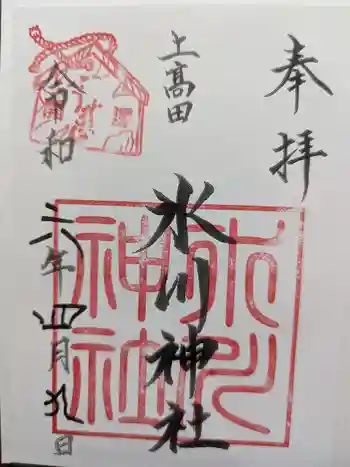 奉拝
上高田
氷川神社
令和
六年四月九日
氷川
神社